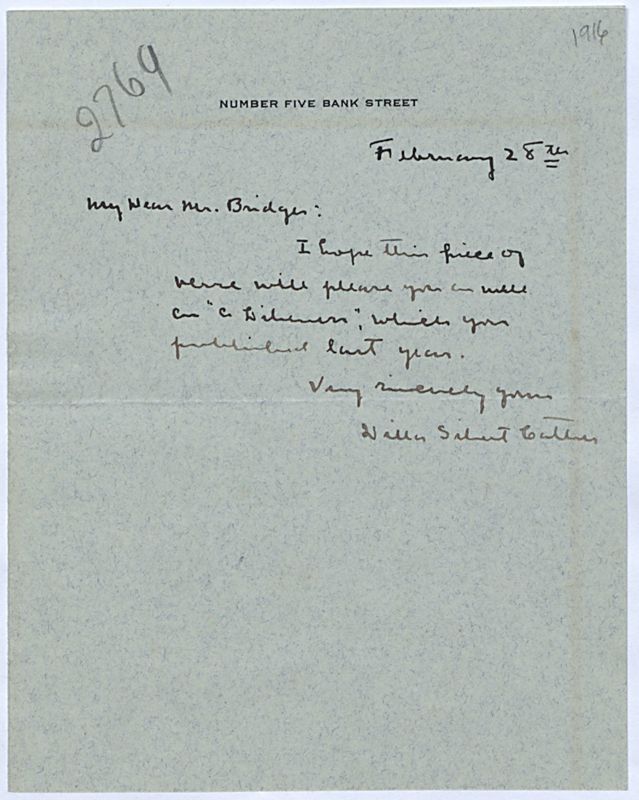 1916
2769
NUMBER FIVE BANK STREET
February 28th
My Dear Mr. Bridges:
I hope this piece of
verse will please you as well
as "A Likeness", which you
published last year.
Very sincerely yours
Willa Sibert Cather